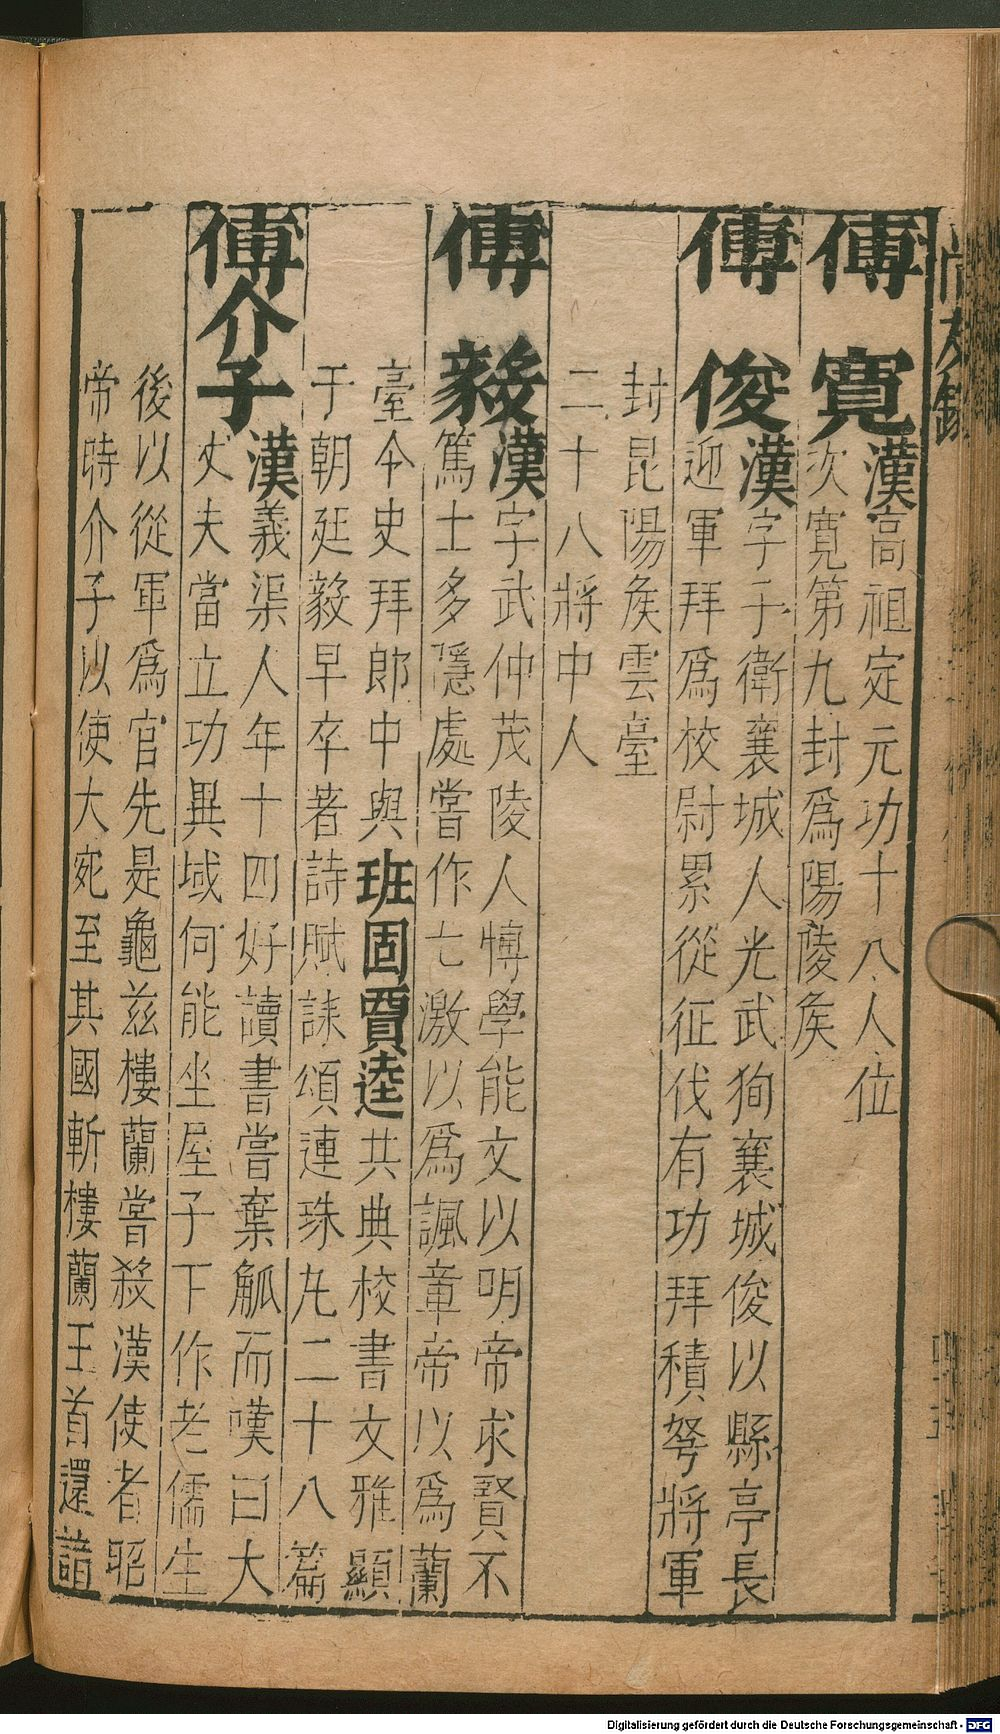 尚友錄
傅寬
漢高祖定元功十八人位
次寬第九封爲陽陵矦
傅俊
漢字子衛襄城人光武狥襄城俊以縣亭長
迎軍拜爲校尉累從征伐有功拜積弩將軍
封昆陽矦雲臺
二十八將中人
傅毅
漢字武仲茂陵人愽學能文以明帝求賢不
篤士多隱處嘗作七激以爲諷章帝以爲蘭
臺令史拜郎中與班固賈逵共典校書文雅顯
于朝廷毅早卒著詩賦誄頌連珠九二十八篇
傅介子
漢義渠人年十四好讀書嘗棄觚而嘆曰大
丈夫當立功異域何能坐屋子下作老儒生
後以從軍爲官先是龜兹樓蘭嘗殺漢使者昭
帝時介子以使大宛至其國斬樓蘭王首還詣
Digitalisierung gefördert durch die Deutsche Forschungsgemeinschaft - DFG